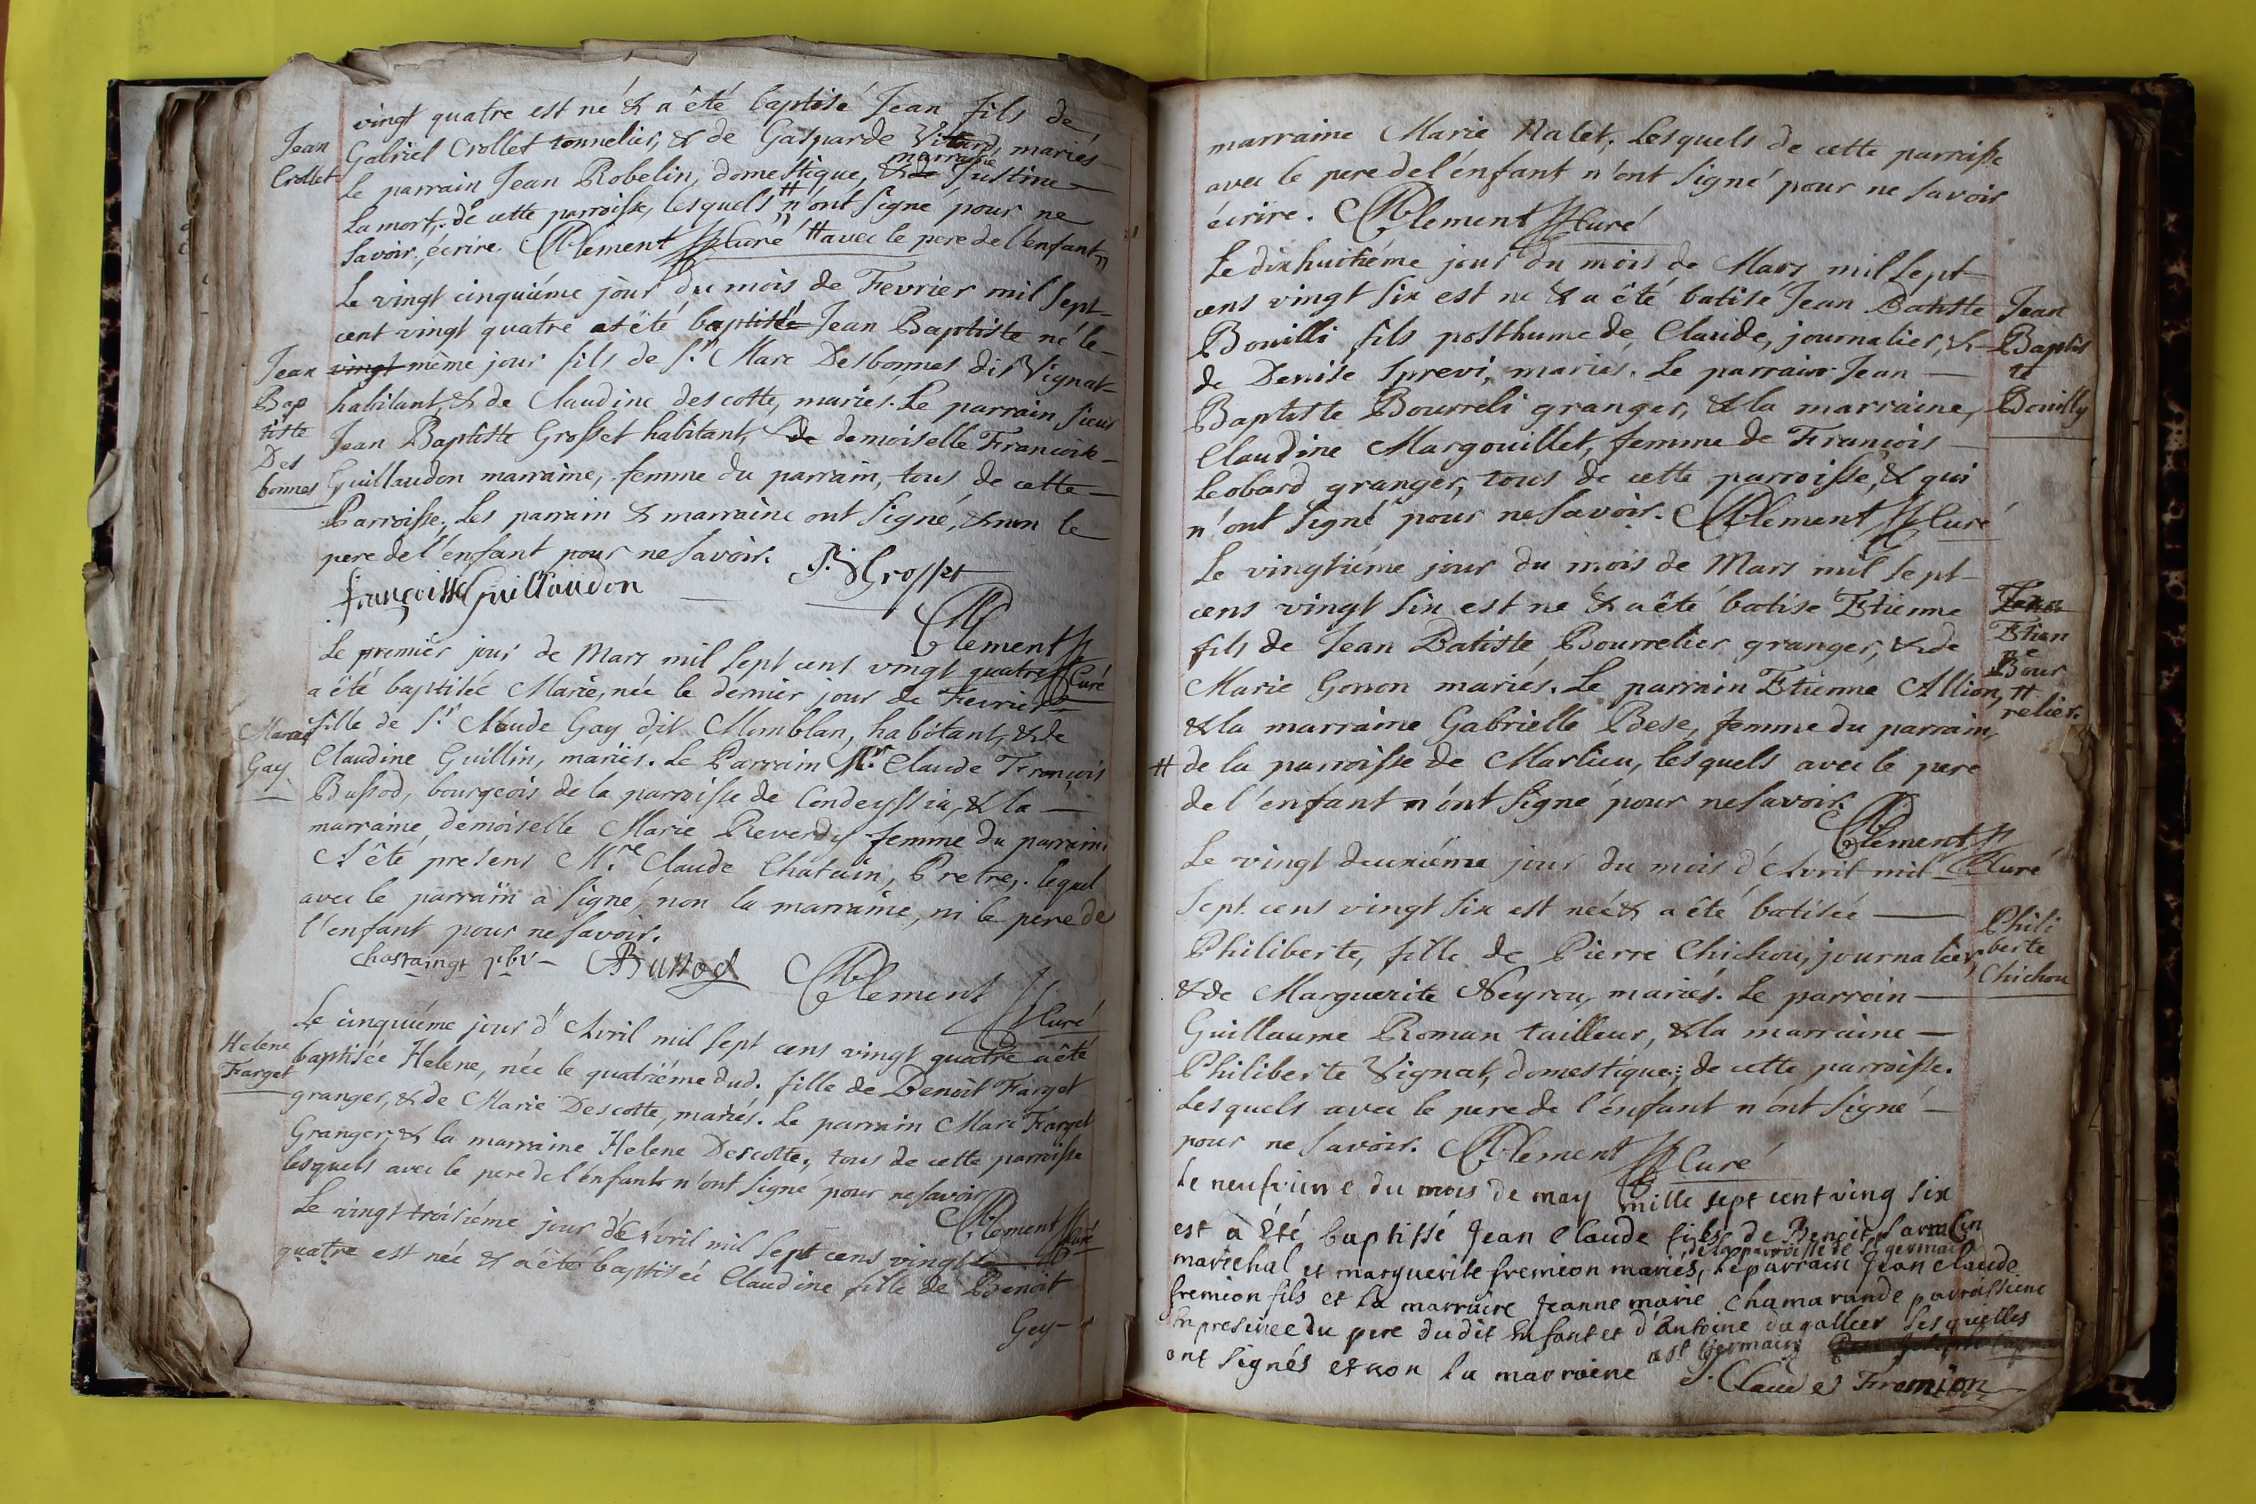 vingt quatre est né & a êté baptisé Jean fils de
Jean
Crollet
Gabriel Crollet tonnelier, & de Gasparde Vitard, mariés
Le parrain Jean Robelin, domestique, & de marraine Justine
Lamort, de cette parroisse, lesquels # n'ont signé pour ne
savoir écrire. Clement Curé # avec le pere de l'enfant
Le vingt cinquiéme jour du mois de Fevrier mil sept
cent vingt quatre a êté baptisé Jean Baptiste né le
Jean
Bap
tiste
Des
bonnes
vingt même jour fils de Sr. Marc Desbonnes dit Vignat
habitant, & de Claudine descotte, mariés. Le parrain sieur
Jean Baptiste Grosset habitant, & de demoiselle Francoise
Guillaudon marraine, femme du parrain, tous de cette
Parroisse. Les parrain & marraine ont signé, & non le
pere de l'énfant pour ne savoir. Grosset
françoisse Guillaudon
Clement Curé
Le premier jour de Mars mil sept cens vingt quatre
a êté baptisée Marie, née le dernier jour de Fevrier
Marie
Gay
fille de Sr. Claude Gay dit Momblan, habitant, & de
Claudine Guillin, mariés. Le Parrain Mr. Claude François
Bussod, bourgeois de la parroisse de Condeyssia, & la
marraine, demoiselle Marie Reverdy femme du parrain
A êté present Mre. Claude Chatain, Pretre, lequel
avec le parrain a signé, non la marraine, ni le pere de
l'énfant pour ne savoir.
Chastaingt pbr Bussod Clement Curé
Helene
Farget
Le cinquiéme jour d'Avril mil sept cens vingt quatre a êté
baptisée Helene, née le quatriéme dud. fille de Benoit Farget
granger, & de Marie Descotte, mariés. Le parrain Marc Farget
Granger, & la marraine Helene Descotte, tous de cette parroisse
lesquels avec le pere de l'énfant n'ont signé pour ne savoir
Clement Curé
Le vingt troisiéme jour d'Avril mil sept cens vingt
quatre est née & a êté baptisée Claudine fille de Benoit
Gey-
marraine Marie Nalet, Lesquels de cette parroisse
avec le pere de l'énfant n'ont signé pour ne savoir
écrire. Clement Curé
Le dixhuitiéme jour du mois de Mars mil sept
cens vingt six est né & a êté batisé Jean Batiste
Jean
Baptis
te
Bouilly
Bouilli fils posthume de Claude, journalier, &
de Denise Sprevi, mariés. Le parrain Jean
Baptiste Bourreli granger, & la marraine,
Claudine Margouillet, femme de François
Leobard granger, tous de cette parroisse, & qui
n'ont signé pour ne savoir. Clement Curé
Le vingtiéme jour du mois de Mars mil sept
cens vingt six est né & a êté batisé Etienne
Jean
Etien
ne
Bour
relier
fils de Jean Batiste Bourrelier granger, & de
Marie Gonon mariés. Le parrain Etienne Allion, #
& la marraine Gabrielle Bese, femme du parrain,
# de la parroisse de Marlieu, lesquels avec le pere
de l'énfant n'ont signé pour ne savoir.
Clement Curé
Le vingt deuxiéme jour du mois d'Avril mil
sept cens vingt six est née & a êté batisée
Phili
berte
Chichou
Philiberte, fille de Pierre Chichou, journalier,
& de Marguerite Neyrou, mariés. Le parroin
Guillaume Roman tailleur, & la marraine
Philiberte Vignat, domestique; de cette parroisse.
Lesquels avec le pere de l'énfant n'ont signé
pour ne savoir. Clement Curé
Le neufvime du mois de may mille sept cent ving six
est a été baptissé Jean Claude fils de Benoit
de la parroisse de St germain
marichal et marguerite fremion mariés, le parrain Jean Claude
fremion fils et la marraire Jeanne marie Chamarande parroissiene
En presence du pere dudit Enfant et d'Antoine dugallier Lesquelles
ont signés et non la marroine a st Germain
Claude Fremion